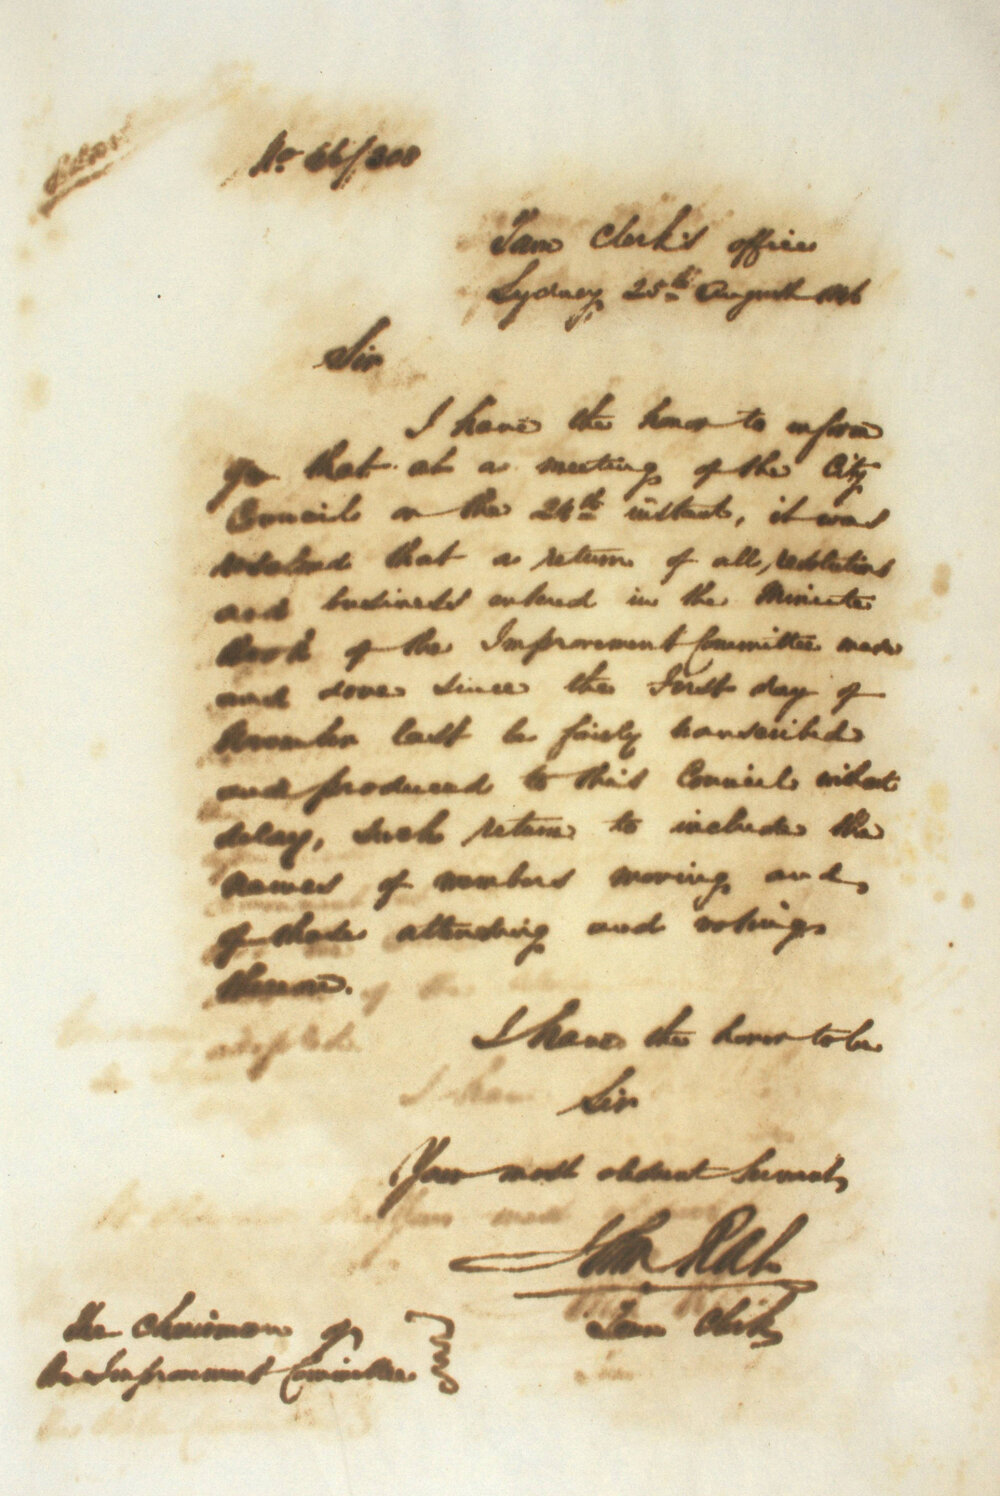 No 46/308
Town Clerk's office
Sydney 25th August 1846
Sir
I have the honor to inform
you that at a meeting of the City
Council on the 24th instant, it was
resolved that a return of all resolutions
and business entered in the Minute
Book of the Improvement Committee made
and done since the First day of
November last be fairly transcribed
and produced to this Council without
delay, such return to include the
names of members moving and
of those attending and voting
thereon.
I have the honor to be
Sir
Your most obedient Servant
John Rae
Town Clerk
The Chairman of
the Improvement Committee